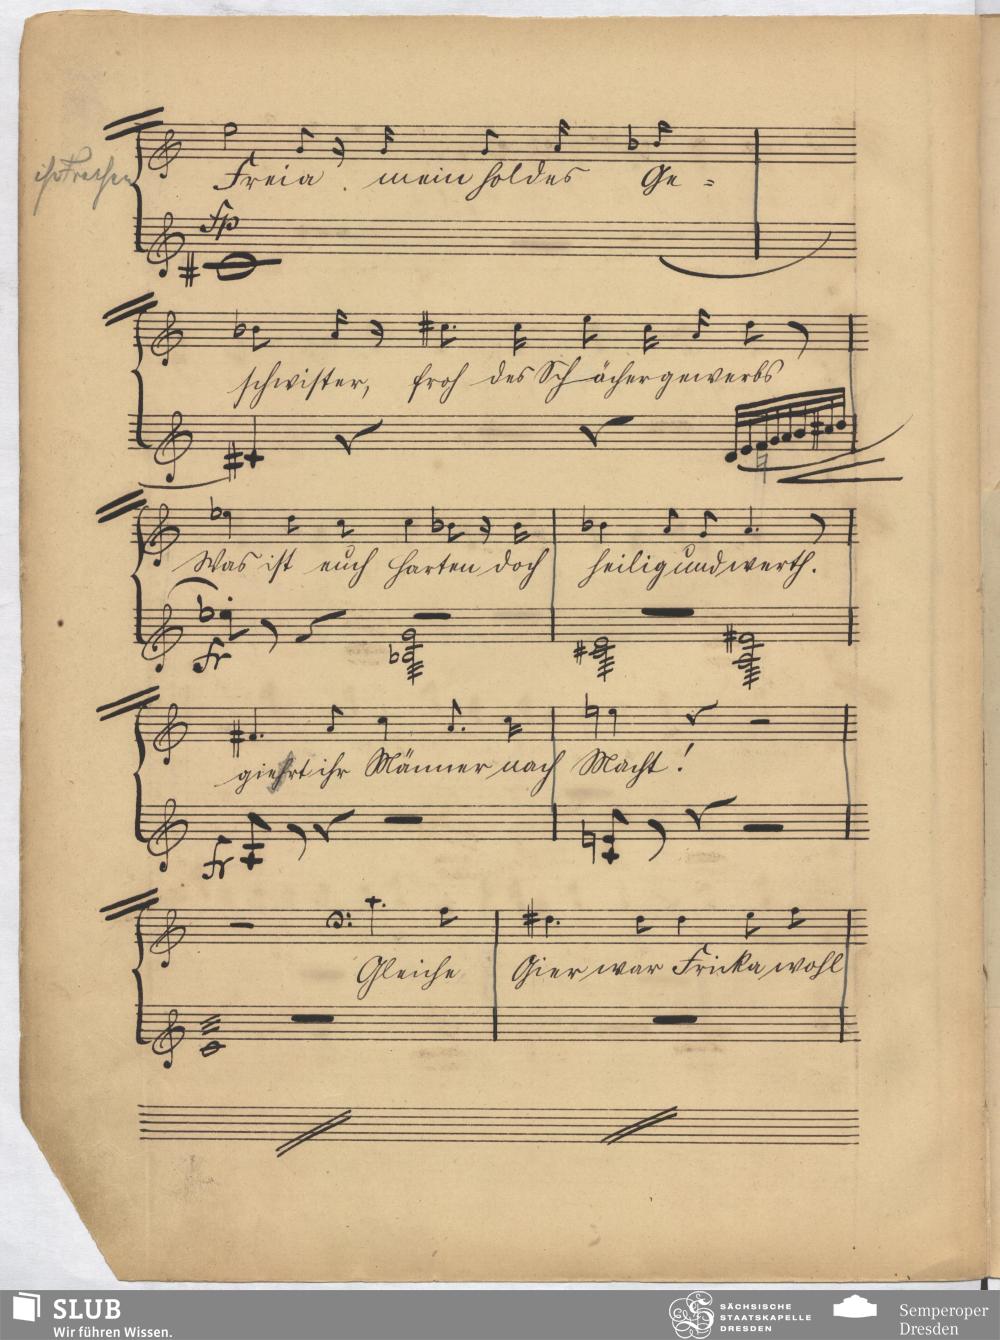 ihr Frechen
Freia, mein holdes Ge-
fp
schwister, froh des Schächergewerbs
Was ist euch Harten doch heilig und werth.
fr
giehrt ihr Männer nach Macht!
fr
Gleiche Gier war Fricka wohl
SLUB
Wir führen Wissen.
SÄCHSISCHE
STAATSKAPELLE
DRESDEN
Semperoper
Dresden